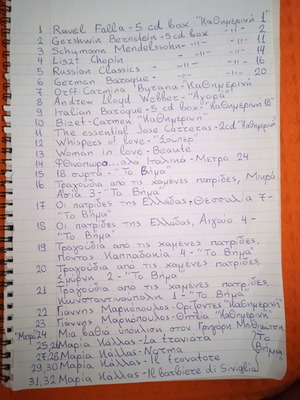 1 Ravel Falla - 5 cd box "Καθημερινή 1"
2 Gershwin Bernstein - 5 cd box - " - 2
3 Schumann Mendelssohn - -11- - -11- 11
4 Liszt Chopin - -11- - -11- 14
5 Russian Classics - -11- - 16
6 German Baroque - -11- - 20
7 Orff-Carmina Burana - Καθημερινή
8 Andrew Lloyd Webber - "Αγορά"
9 Italian Baroque - 5 cd box - "Καθημερινή 18"
10 Bizet - Carmen "Καθημερινή"
11 The essential Jose Carreras - 2cd "Καθημερινή"
12 Whispers of love - "Σούπερ"
13 Woman in love - Beauté
14 Φθινόπωρο...αλά Ιταλικά - Μετρό 24
15 18 συρτά - "Το Βήμα"
16 Τραγούδια από τις χαμένες πατρίδες, Μικρά
Ασία 3 - "Το Βήμα"
17 Οι πατρίδες της Ελλάδας, Θεσσαλία 7 -
"Το Βήμα"
18 Οι πατρίδες της Ελλάδας, Αιγαίο 4 -
"Το Βήμα"
19 Τραγούδια από τις χαμένες πατρίδες,
Πόντος Καππαδοκία 4 - "Το Βήμα"
20 Τραγούδια από τις χαμένες πατρίδες,
Σμύρνη 2 - "Το Βήμα"
21 Τραγούδια από τις χαμένες πατρίδες,
Κωνσταντινούπολη 1 - "Το Βήμα"
22 Γιάννης Μαρκόπουλος - Ορίζοντες "Καθημερινή"
23 Γιάννης Μαρκόπουλος - Θητεία "Καθημερινή"
"Μετρό" 24 Μια βαθιά υπόκλιση στον Γρηγόρη Μπιθικώτση
25,26 Μαρία Κάλλας - La traviata "Το
27,28 Μαρία Κάλλας - Norma Βήμα"
29,30 Μαρία Κάλλας - Il trovatore
31,32 Μαρία Κάλλας - Il barbiere di Siviglia